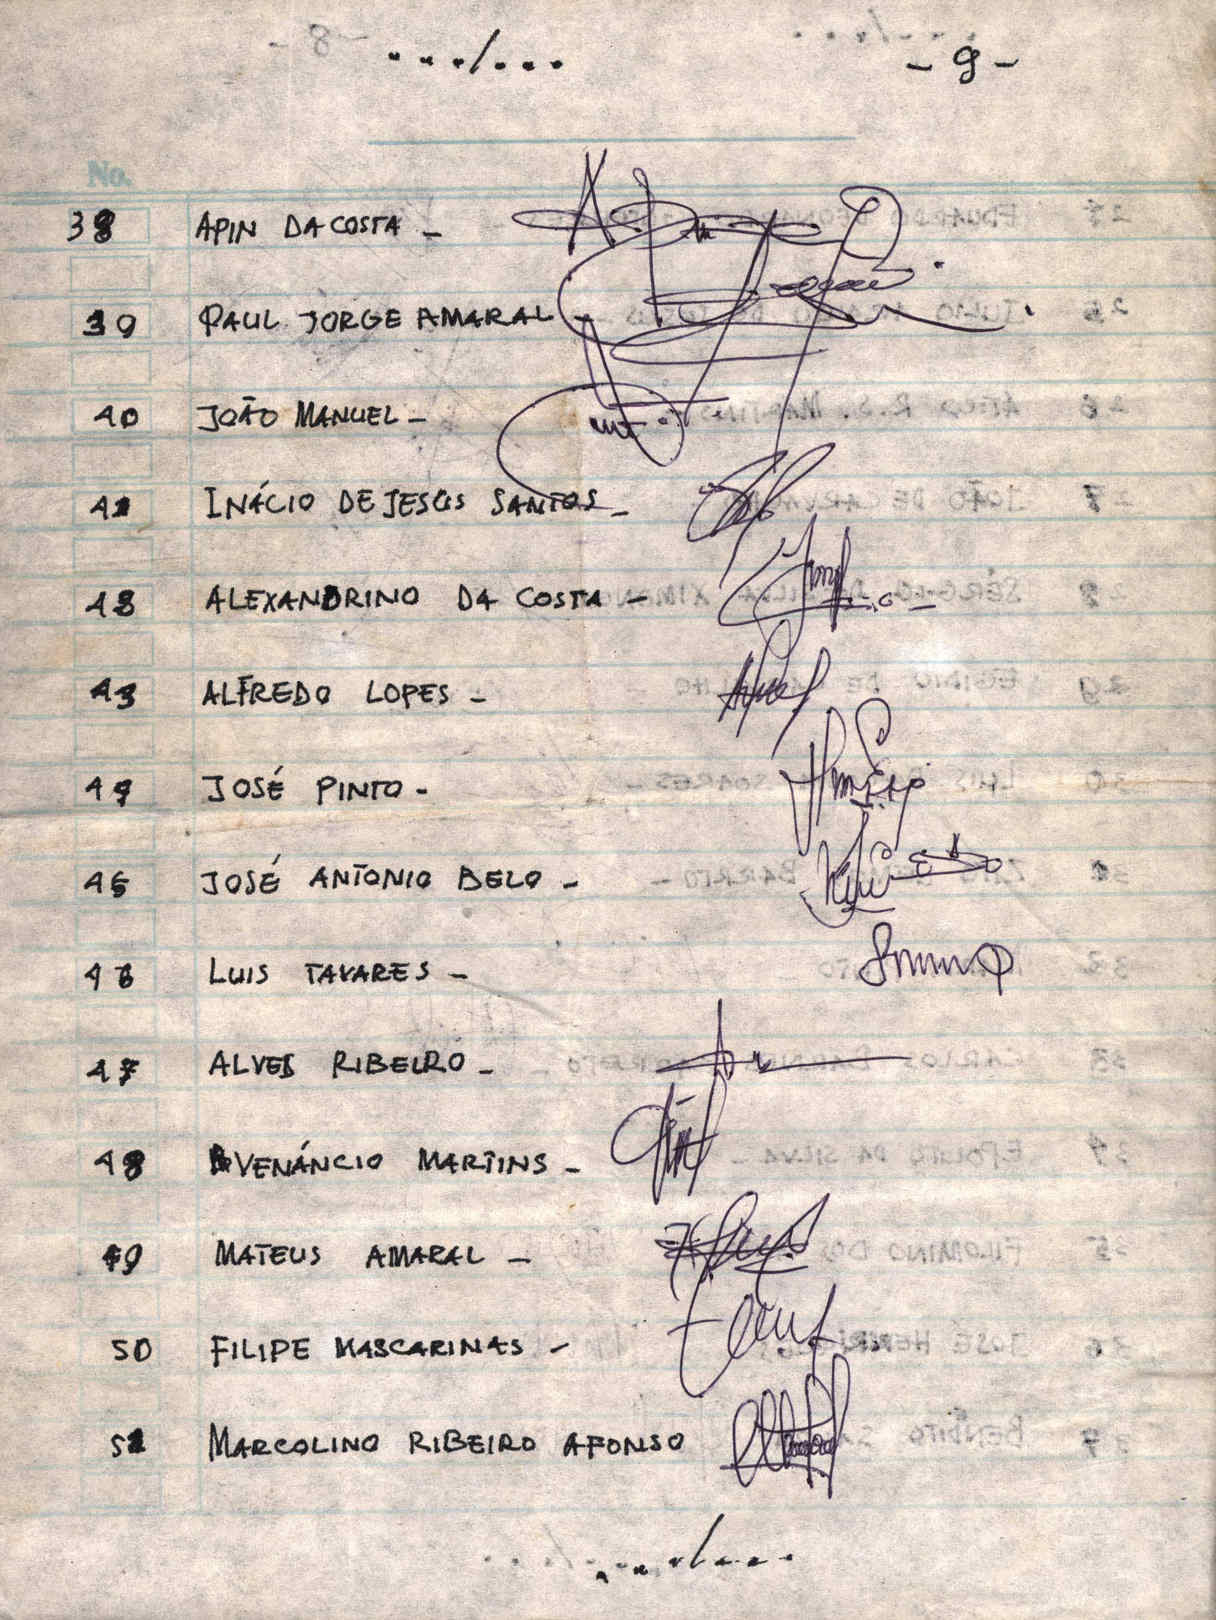 .../...
- 9 -
No.
38 APIN DA COSTA -
39 PAUL JORGE AMARAL -
40 JOÃO MANUEL -
41 INÁCIO DE JESUS SANTOS -
43 ALEXANDRINO DA COSTA -
43 ALFREDO LOPES -
44 JOSÉ PINTO -
45 JOSÉ ANTONIO BELO -
46 LUIS TAVARES -
47 ALVES RIBEIRO -
48 VENÁNCIO MARTINS -
49 MATEUS AMARAL -
50 FILIPE MASCARINAS -
51 MARCOLINO RIBEIRO AFONSO
.../...